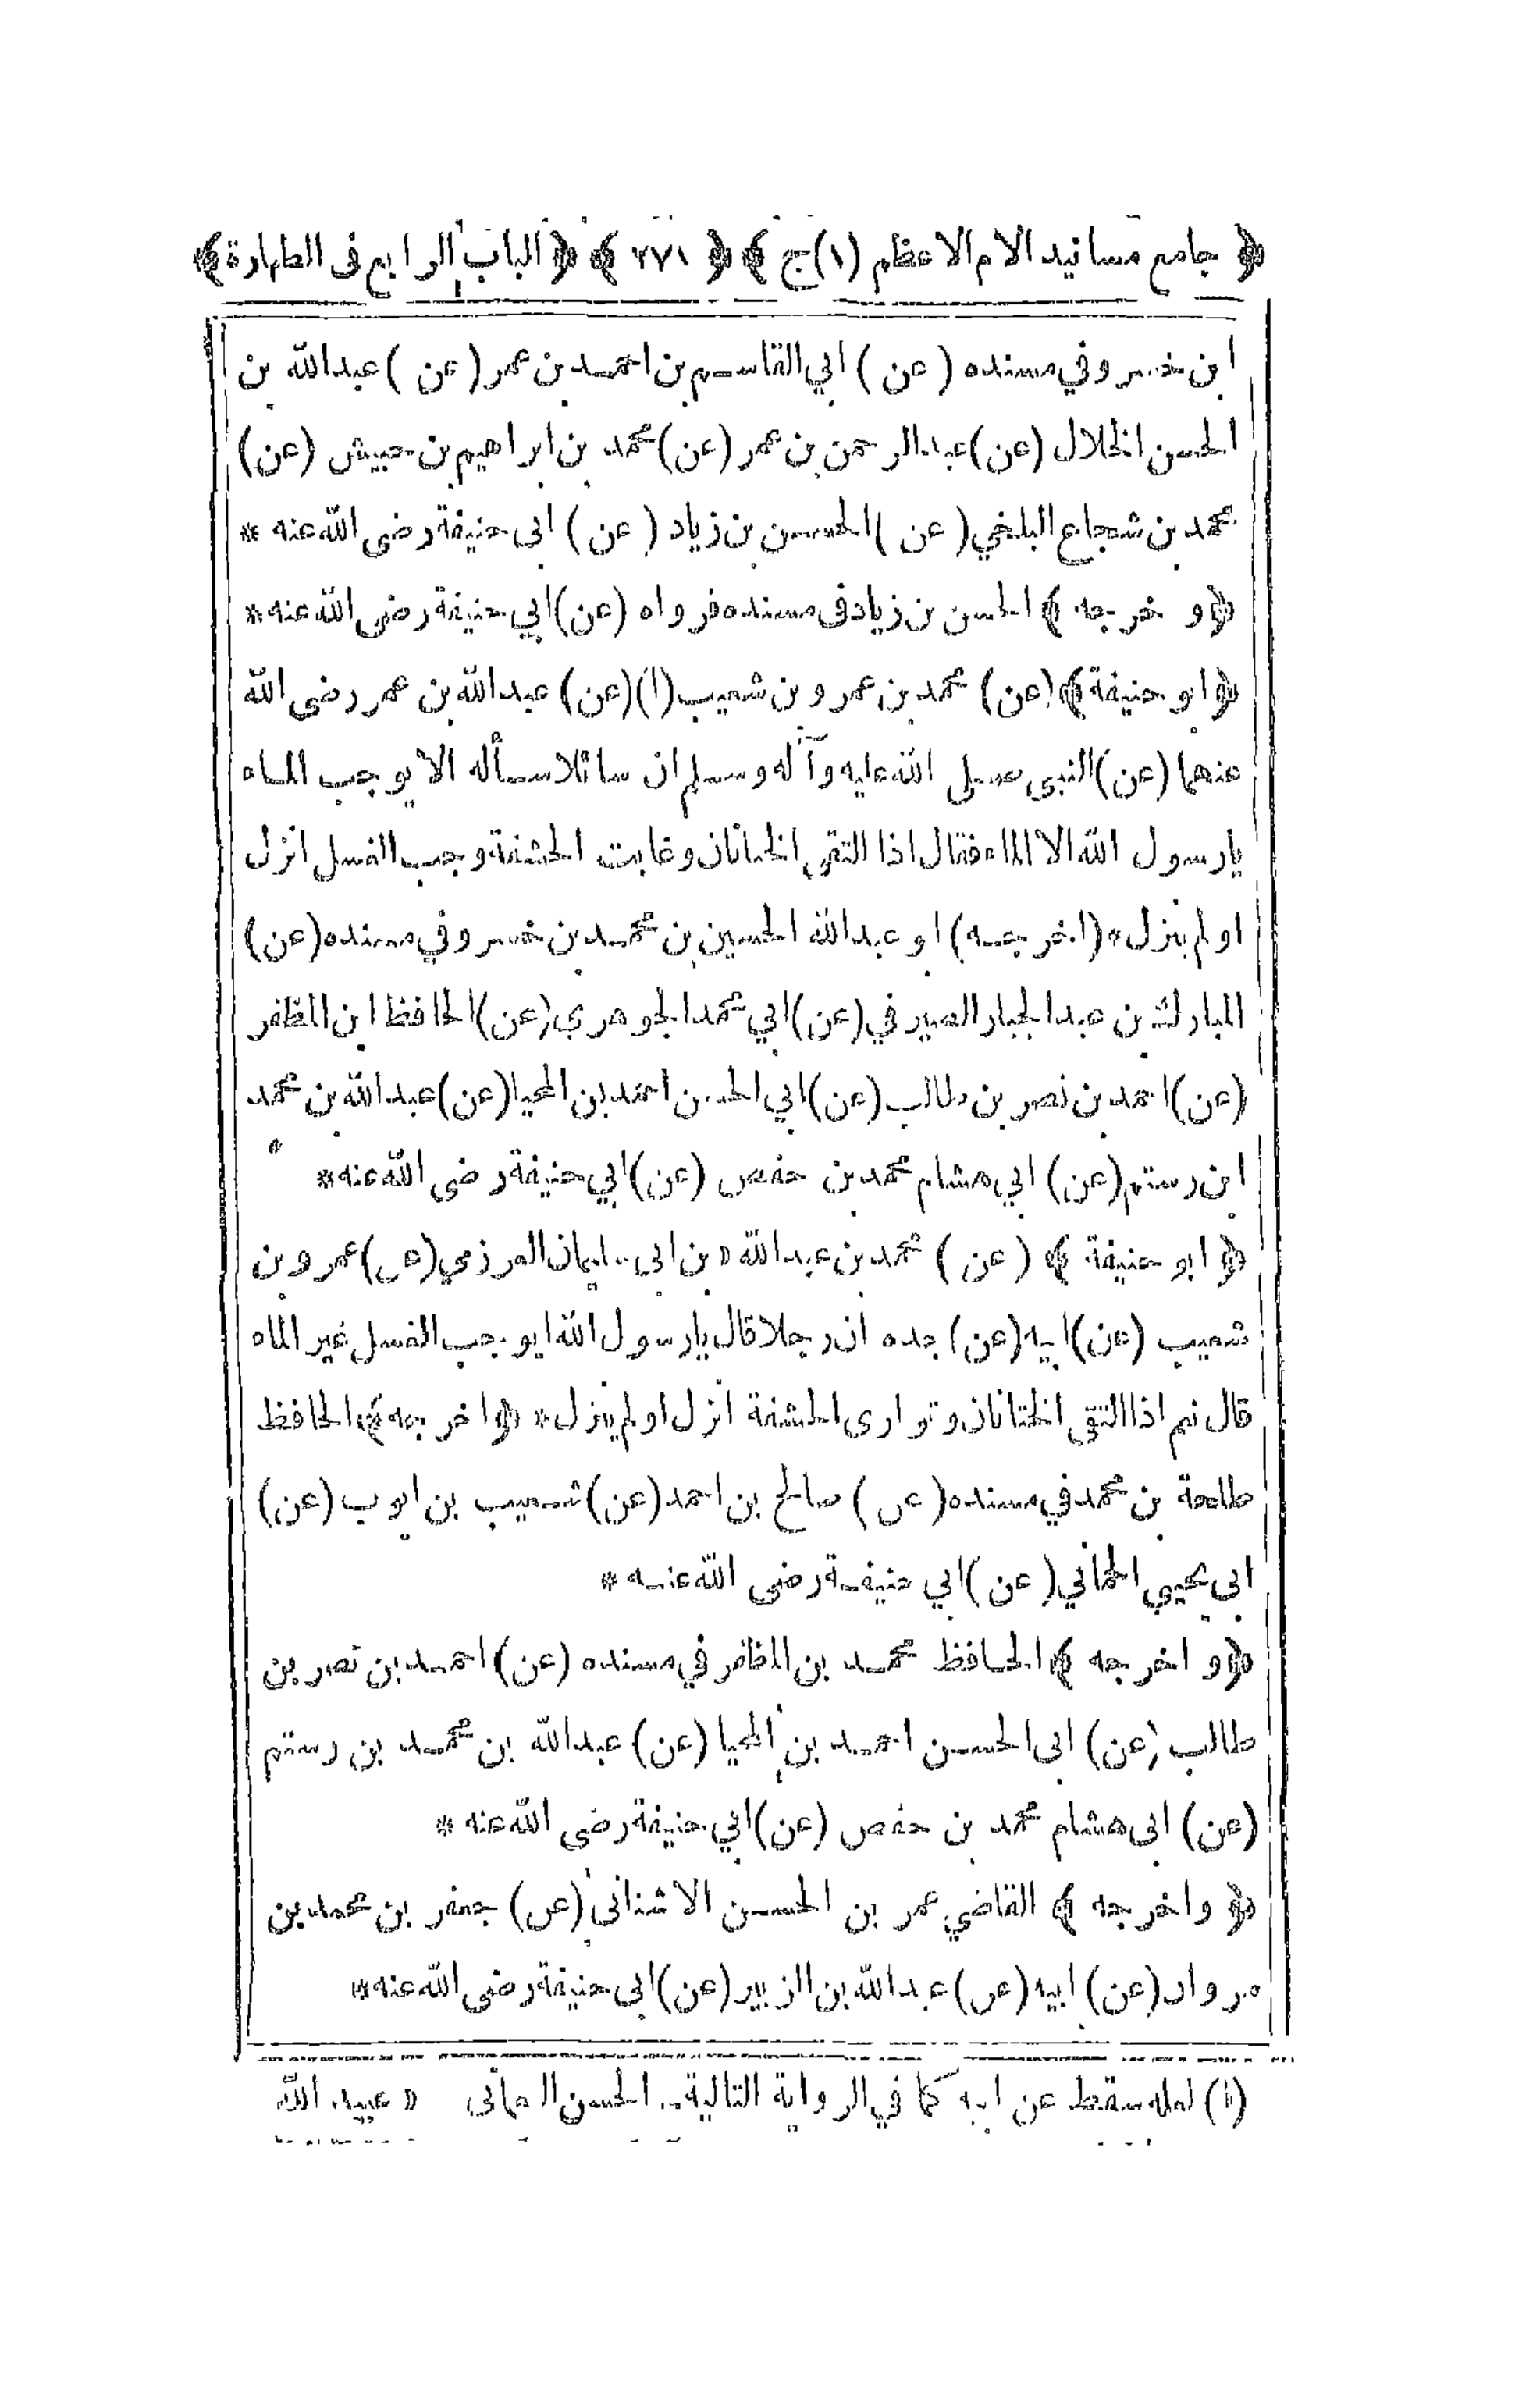 ﴿ جامع مسانيد الامام الاعظم (١)ج ﴾ ﴿ ٢٧١ ﴾ ﴿ الباب الرابع فى الطهارة ﴾
ابن خسر وفي مسنده ( عن ) ابي القاسم بن احمد بن عمر ( عن ) عبدالله بن
الحسن الخلال (عن) عبدالرحمن بن عمر (عن) محمد بن ابراهيم بن حبيش (عن)
محمد بن شجاع البلخي ( عن ) الحسن بن زياد ( عن ) ابى حنيفة رضى الله عنه *
﴿ و خرجه ﴾ الحسن بن زياد فى مسنده فرواه (عن) ابي حنيفة رضى الله عنه *
﴿ ابو حنيفة ﴾ (عن) محمد بن عمرو بن شعيب (١) (عن) عبدالله بن عمر رضى الله
عنهما (عن) النبى صلى الله عليه وآله وسلم ان سائلا سأله الا يوجب الماء
يارسول الله الا الماء فقال اذا التقى الختانان وغابت الحشفة وجب الغسل انزل
اولم ينزل * (اخرجه) ابو عبدالله الحسين بن محمد بن خسر وفي مسنده (عن)
المبارك بن عبدالجبار الصيرفي (عن) ابي محمد الجوهري (عن) الحافظ ابن المظفر
(عن) احمد بن نصر بن طالب (عن) ابي الحسن احمد بن المحيا (عن) عبدالله بن محمد
ابن رستم (عن) ابي هشام محمد بن حفص (عن) ابي حنيفة رضى الله عنه *
﴿ ابو حنيفة ﴾ ( عن ) محمد بن عبدالله « بن ابى سليمان العرزمي (عن) عمرو بن
شعيب (عن) ابيه (عن) جده ان رجلا قال يارسول الله ايوجب الغسل غير الماء
قال نعم اذا التقى الختانان وتوارى الحشفة انزل اولم ينزل * ﴿ اخرجه ﴾ الحافظ
طلحة بن محمد في مسنده (عن) صالح بن احمد (عن) شعيب بن ايوب (عن)
ابى يحيي الحماني (عن) ابي حنيفة رضى الله عنه *
﴿ و اخرجه ﴾ الحافظ محمد بن المظفر في مسنده (عن) احمد بن نصر بن
طالب (عن) ابى الحسن احمد بن المحيا (عن) عبدالله بن محمد بن رستم
(عن) ابى هشام محمد بن حفص (عن) ابي حنيفة رضى الله عنه *
﴿ واخرجه ﴾ القاضي عمر بن الحسن الاشنانى (عن) جعفر بن محمد بن
مروان (عن) ابيه (عن) عبدالله بن الزبير (عن) ابى حنيفة رضى الله عنه *
(١) لعله سقط عن ابيه كما في الرواية التالية .. الحسن النعمانى « عبيد الله